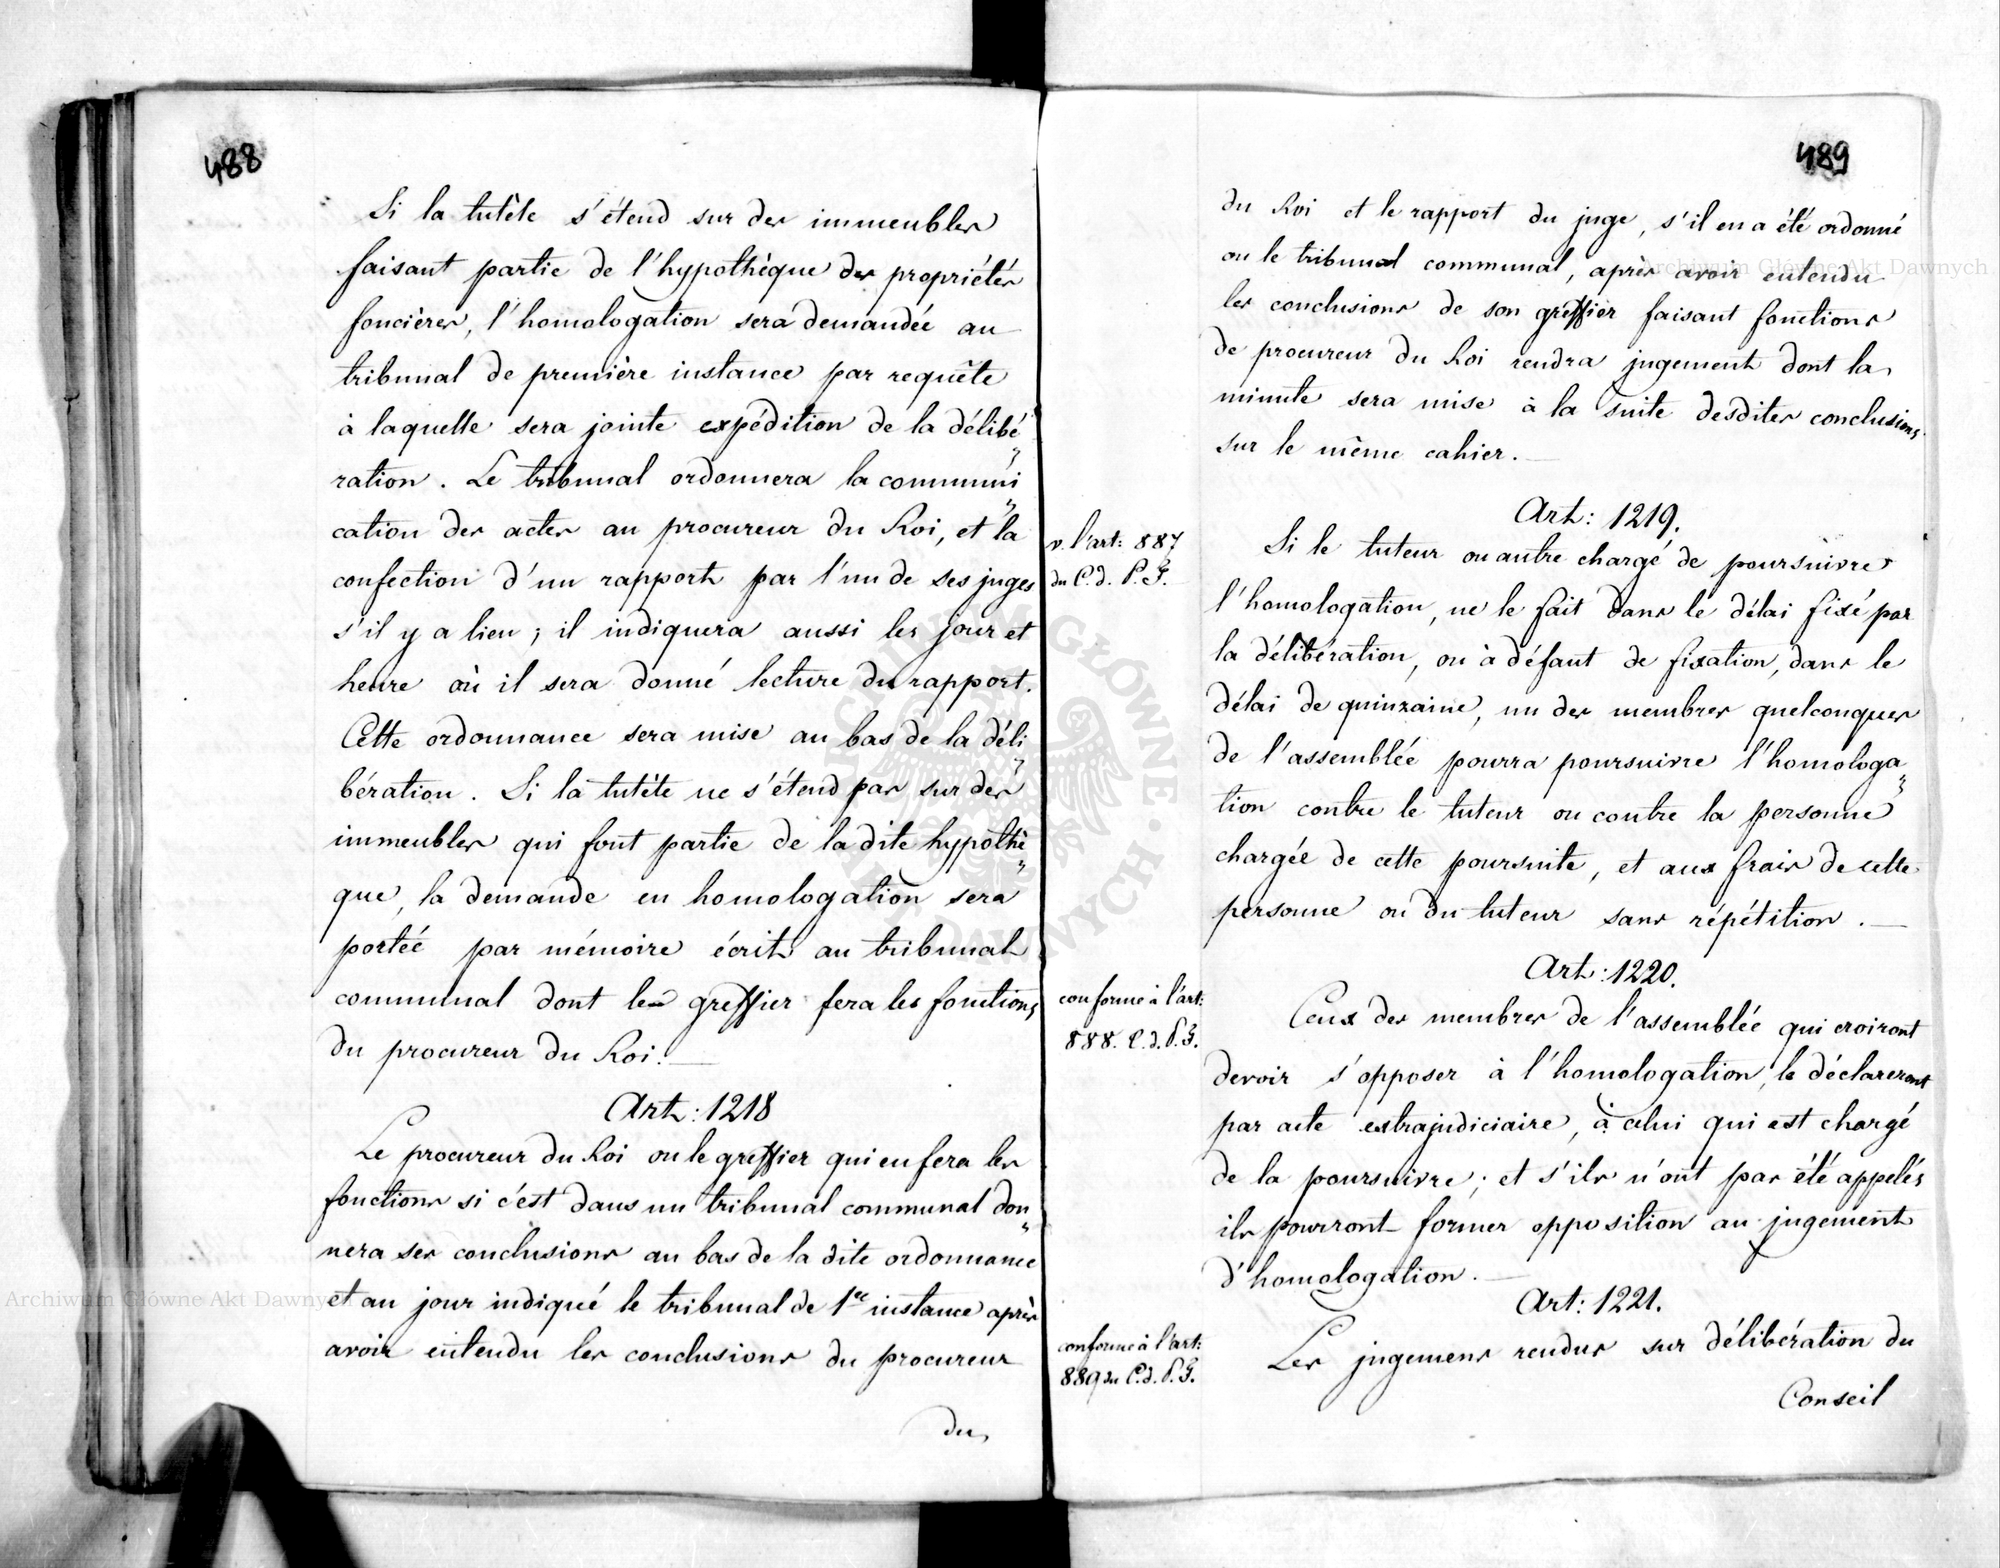 488
Si la tutèle s'étend sur des immeubles
faisant partie de l'hypothèque des propriétés
foncières, l'homologation sera demandée au
tribunal de première instance par requête
à laquelle sera jointe expédition de la délibé
ration. Le tribunal ordonnera la communi
cation des actes au procureur du Roi, et la
confection d'un rapport par l'un de ses juges
s'il y a lieu; il indiquera aussi les jour et
heure où il sera donné lecture du rapport.
Cette ordonnance sera mise au bas de la déli
bération. Si la tutèle ne s'étend pas sur des
immeubles qui font partie de la dite hypothè
que, la demande en homologation sera
portée par mémoire écrit au tribunal
communal dont le greffier fera les fonctions
du procureur du Roi.
Art: 1218
Le procureur du Roi ou le greffier qui en fera les
fonctions si c'est dans un tribunal communal don
nera ses conclusions au bas de la dite ordonnance
et au jour indiqué le tribunal de 1re instance après
avoir entendu les conclusions du procureur
du
489
du Roi et le rapport du juge, s'il en a été ordonné
ou le tribunal communal, après avoir entendu
les conclusions de son greffier faisant fonctions
de procureur du Roi rendra jugement dont la
minute sera mise à la suite desdites conclusions
sur le même cahier.
Art: 1219.
v. l'art: 887
du C. d. P. F.
Si le tuteur ou autre chargé de poursuivre
l'homologation, ne le fait dans le délai fixé par
la délibération, ou à défaut de fixation, dans le
délai de quinzaine, un des membres quelconques
de l'assemblée pourra poursuivre l'homologa
tion contre le tuteur ou contre la personne
chargée de cette poursuite, et aux frais de cette
personne ou du tuteur sans répétition.
Art: 1220.
conforme à l'art:
888. C. d. P. F.
Ceux des membres de l'assemblée qui croiront
devoir s'opposer à l'homologation, le déclareront
par acte extrajudiciaire, à celui qui est chargé
de la poursuivre; et s'ils n'ont pas été appelés
ils pourront former opposition au jugement
d'homologation.
Art: 1221.
conforme à l'art:
889 du C. d. P. F.
Les jugemens rendus sur délibération du
Conseil
Archiwum Główne Akt Dawnych
Archiwum Główne Akt Dawnych
ARCHIWUM GŁÓWNE AKT DAWNYCH